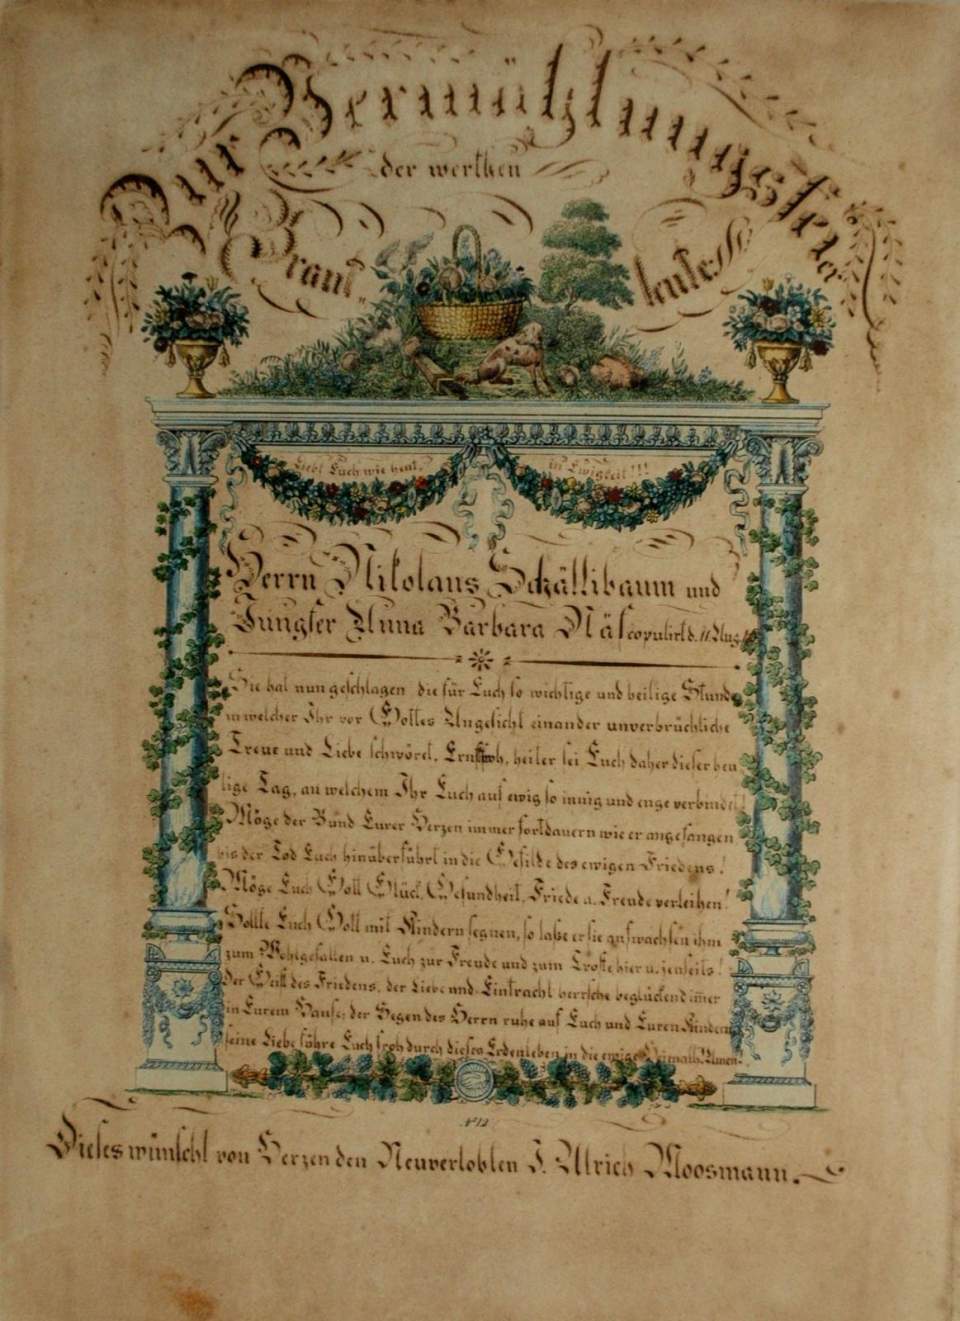 Zur Vermählungsfeier
der werthen
Braut- leute
Liebt Euch wie heut,
in Ewigkeit!!!
Herrn Nikolaus Schällibaum und
Jungfer Anna Barbara Näf copulirt d. 11 Aug
Sie hat nun geschlagen die für Euch so wichtige und heilige Stunde
in welcher Ihr vor Gottes Angesicht einander unverbrüchliche
Treue und Liebe schwöret, Ernst froh, heiter sei Euch daher dieser heu
tige Tag, an welchem Ihr Euch auf ewig so innig und enge verbindet!
Möge der Bund Eurer Herzen immer fortdauern wie er angefangen
bis der Tod Euch hinüberführt in die Gefilde des ewigen Friedens!
Möge Euch Gott Glück, Gesundheit, Friede u. Freude verleihen!
Sollte Euch Gott mit Kindern segnen, so laße er sie aufwachsen ihm
zum Wohlgefallen u. Euch zur Freude und zum Troste hier u. jenseits!
Der Geist des Friedens, der Liebe und Eintracht herrsche beglückend im̄er
in Eurem Hause; der Segen des Herrn ruhe auf Euch und Euren Kindern
seine Liebe führe Euch froh durch dieses Erdenleben in die ewige Heimath! Amen.
No 12
Dieses wünscht von Herzen den Neuverlobten J. Ulrich Moosmann.